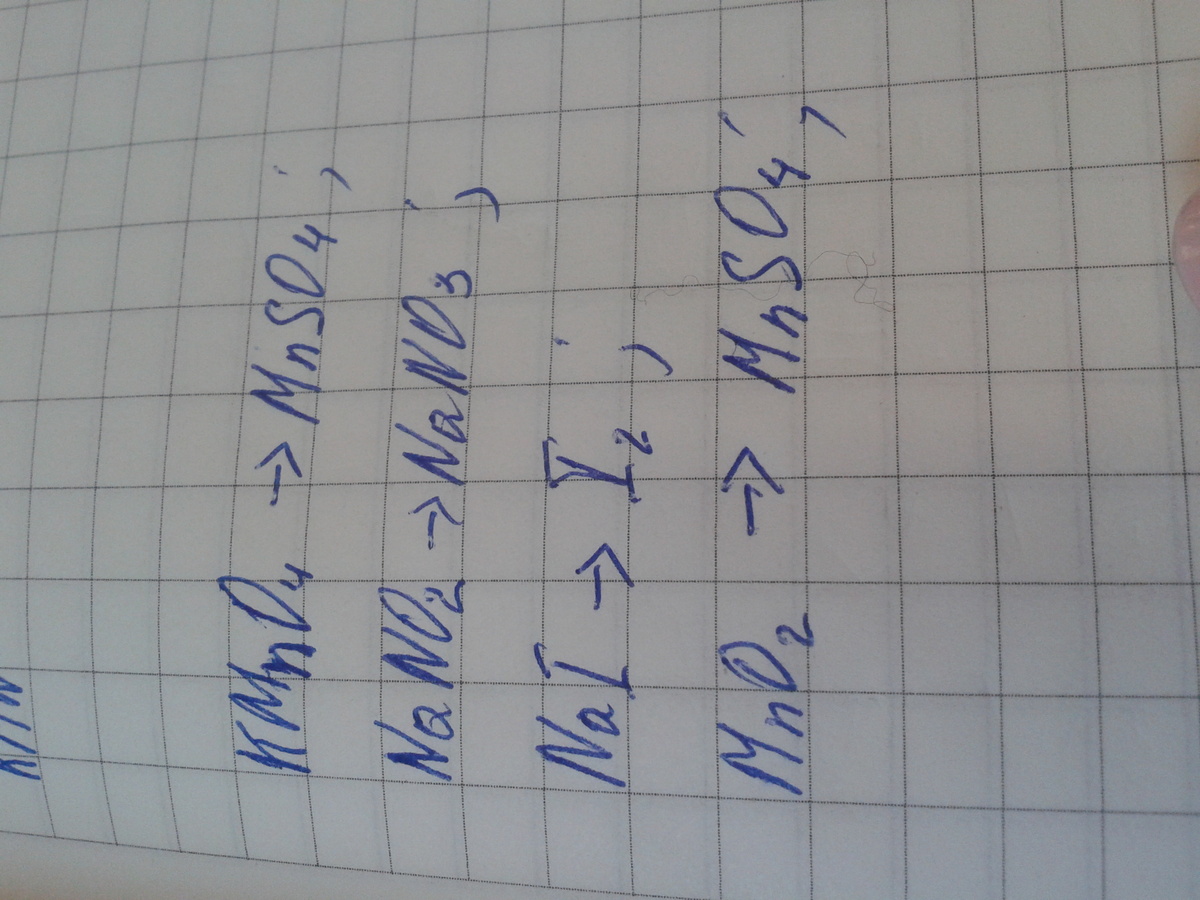 KMnO₄ → MnSO₄;
NaNO₂ → NaNO₃;
NaI → I₂;
MnO₂ → MnSO₄;